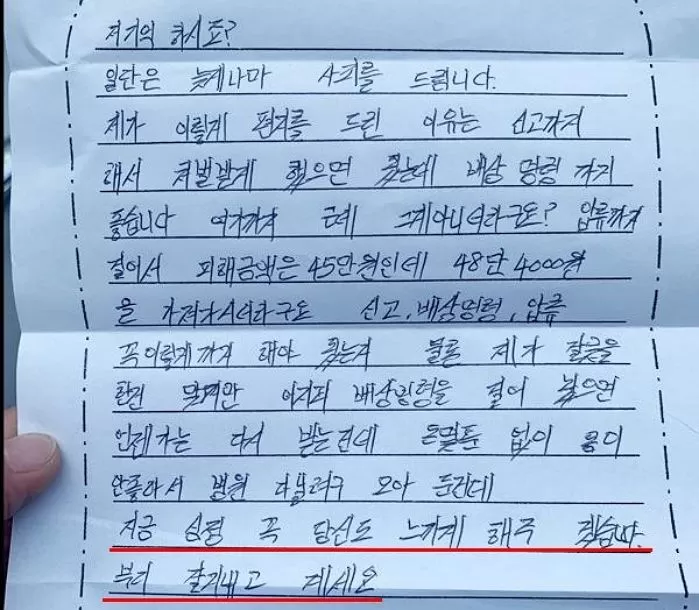 저기의 하시죠?
일단은 늦게나마 사피를 드립니다.
제가 이렇게 편지를 드린 이유는 신고까지
해서 처벌받게 했으면 됬는데 배상 명령 까지
좋습니다 여기까지 근데 그게아니더라구요? 압류까지
걸어서 피해금액은 45만원인데 48만 4000원
을 가져가시더라구요 신고, 배상명령, 압류
꼭이렇게까지 해야 했는지 물론 제가 잘못을
한건 맞지만 어차피 배상명령을 걸어 놨으면
언젠가는 다시 받는건데 없이 몸이
안좋아서 병원 다닐려구 모아 둔건데
지금 심정 꼭 당신도 느끼게 해주 겠습니다.
부디 잘지내고 계세요